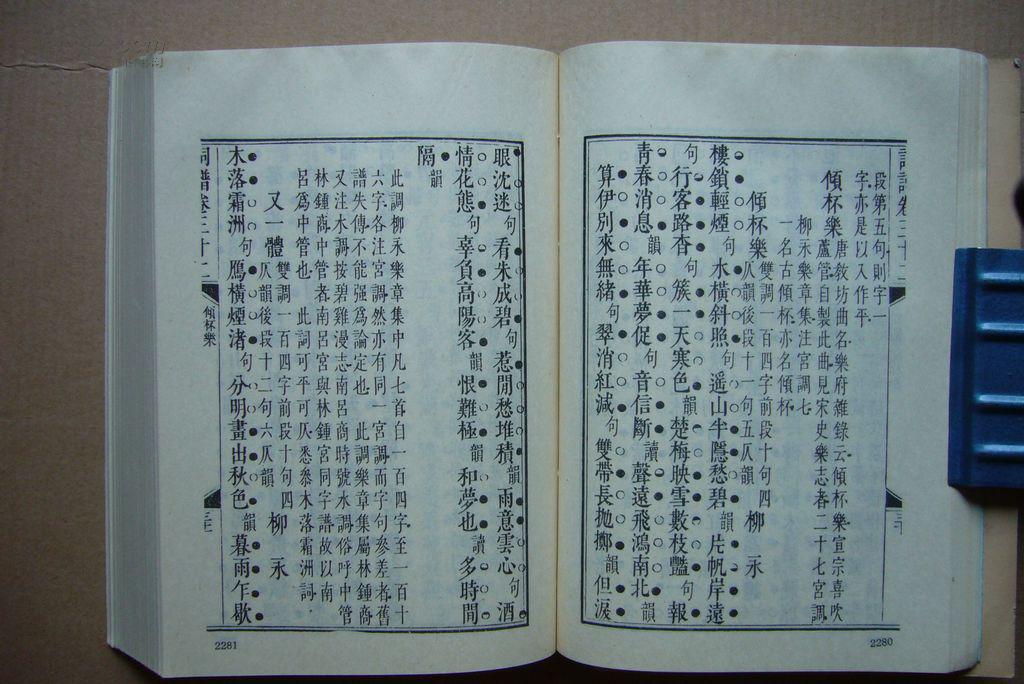 詞譜卷三十二
段第五句則字一
字亦是以入作平
傾杯樂 唐敎坊曲名樂府雜錄云傾杯樂宣宗喜吹
蘆管自製此曲見宋史樂志者二十七宮調
柳永樂章集注宮調七
一名古傾杯亦名傾杯
傾杯樂 雙調一百四字前段十句四 柳永
仄韻後段十一句五仄韻
樓鎖輕煙句 水橫斜照句 遥山半隱愁碧韻 片帆岸遠
句 行客路杳句 簇一天寒色韻 楚梅映雪數枝豔句 報
青春消息韻 年華夢促句 音信斷讀 聲遠飛鴻南北韻
算伊別來無緒句 翠消紅減句 雙帶長抛擲韻 但淚
三十
2280
眼沈迷句 看朱成碧句 惹閒愁堆積韻 雨意雲心句 酒
情花態句 辜負高陽客韻 恨難極韻 和夢也讀 多時間
隔韻
此調柳永樂章集中凡七首自一百四字至一百十
六字各注宮調然亦有同一宮調而字句參差者舊
譜失傳不能强爲論定也 此調樂章集屬林鍾商
又注水調按碧雞漫志南呂商時號水調俗呼中管
林鍾商中管者南呂宮與林鍾宮同字譜故以南
呂爲中管也 此詞可平可仄悉叅木落霜洲詞
又一體 雙調一百四字前段十句四 柳永
仄韻後段十二句六仄韻
木落霜洲句 鴈橫煙渚句 分明畫出秋色韻 暮雨乍歇
詞譜卷三十二
傾杯樂
2281